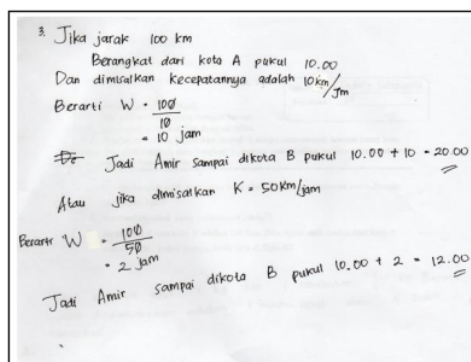 3. Jika jarak 100 km
Berangkat dari kota A pukul 10.00
Dan dimisalkan kecepatannya adalah 10 km/jm
Berarti W = 100/10
= 10 jam
Jadi Amir sampai dikota B pukul 10.00 + 10 = 20.00
Atau jika dimisalkan K = 50 km/jam
Berarti W = 100/50
= 2 jam
Jadi Amir sampai dikota B pukul 10.00 + 2 = 12.00